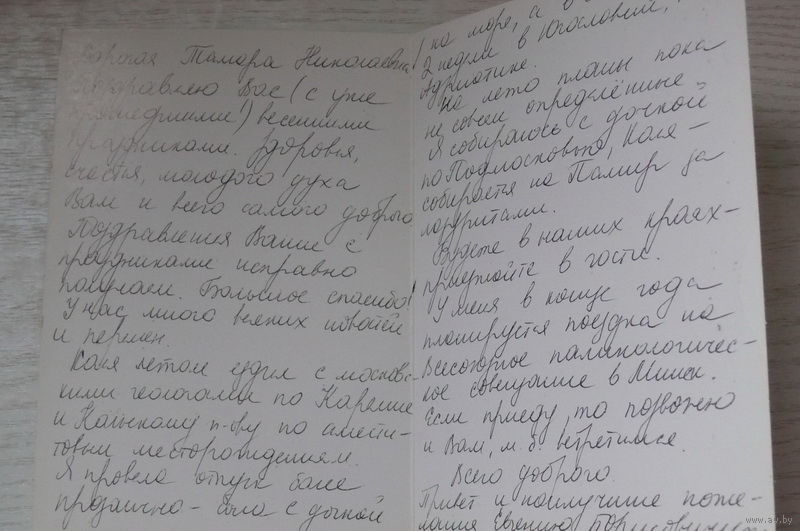 Дорогая Тамара Николаевна!
Поздравляю Вас (с уже
прошедшими!) весенними
праздниками. Здоровья,
счастья, молодого духа
Вам и всего самого доброго.
Поздравления Ваши с
праздниками исправно
получаем. Большое спасибо!
У нас много всяких новостей
и перемен.
Коля летом ездил с московс-
кими геологами по Карелии
и Кольскому п-ову по амети-
товым месторождениям.
Я провела отпуск более
прозаично – была с дочкой
на море, а
2 недели в Югославии,
Адриатике.
На лето планы пока
не совсем определённые
Я собираюсь с дочкой
по Подмосковью, Коля –
собирается на Памир за
лазуритами.
Будете в наших краях –
приезжайте в гости.
У меня в конце года
планируется поездка на
Всесоюзное палинологичес-
кое совещание в Минск.
Если приеду, то позвоню
и Вам, м.б. встретимся.
Всего доброго.
Привет и наилучшие поже-
лания Евгению
www.ay.by